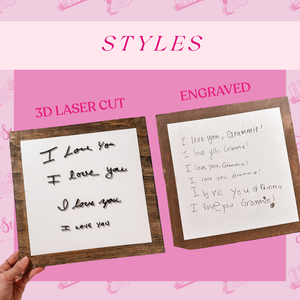 STYLES
3D LASER CUT
ENGRAVED
I Love You
I love you
I love you
I LOVE YOU
I love you, Grammie!
I love you, Grammie!
I love you, Grammie!
I love you, Grammie!
I love you Grammie
I love you Grammie!